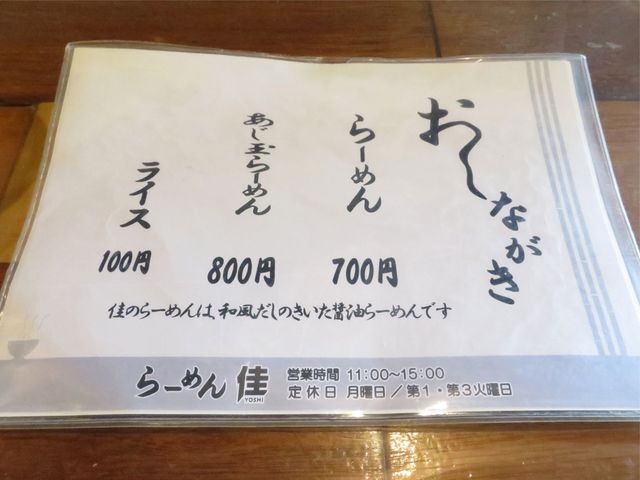 おしながき
らーめん
700円
あじ玉らーめん
800円
ライス
100円
佳のらーめんは、和風だしのきいた醤油らーめんです
らーめん 佳
YOSHI
営業時間 11:00~15:00
定休日 月曜日／第1・第3火曜日